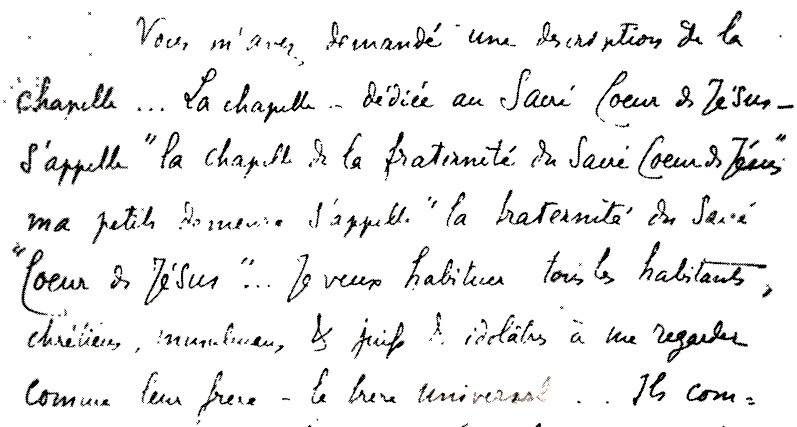 Vous m'avez demandé une description de la
chapelle ... La chapelle - dédiée au Sacré Coeur de Jésus -
s'appelle "la chapelle de la fraternité du Sacré Coeur de Jésus"
ma petite demeure s'appelle "la fraternité du Sacré
"Coeur de Jésus"... Je veux habituer tous les habitants,
chrétiens, musulmans & juifs & idolâtres à me regarder
comme leur frère - le frère universel . . Ils com=